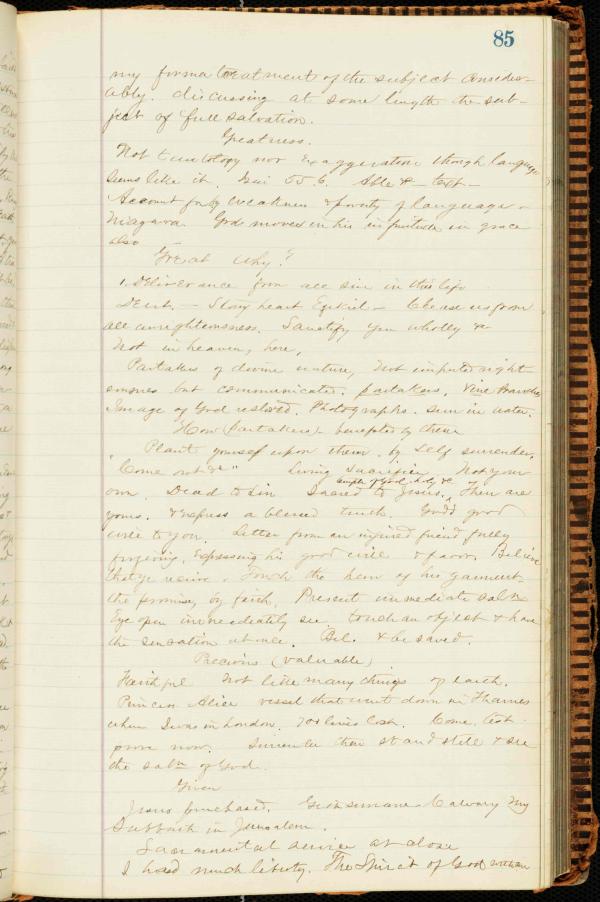 85
my former treatment of the subject consider-
ably. discussing at some length the sub-
ject of full salvation.
Greatness.
Not tautology nor exaggeration though language
seems like it. 55.6. Able &- text-
Account for by weakness & poverty of language -
Niagara God moves in his infinitude in grace
also
Great why?
1. Deliverance from all sin in this life
Deut. - Stony heart Ezekiel - Cleanse us from
all unrighteousness. Sanctify you wholly &c
Not in heaven, here.
Partakers of divine nature, Not imputed right
eousness but communicated. partakers. Vine branches
Image of God restored. Photographs. sun in water.
How (Partakers) benefited by them
Plant yourself upon them by Self surrender.
"Come out &c" Living Sacrifice Not your
temple of God holy &c
own. Dead to sin Sacred to Jesus. These are
yours. Express a blessed truth. God's good
will to you. Letter from an injured friend fully
forgiving, expressing his good will & favor. Believe
that ye receive. Touch the hem of his garment
the promise, by faith. Present immediate salvn
Eye open immediately see. touch an object & have
the sensation at once. Bel. & be saved.
Precious (valuable)
Faithful Not like many things of earth.
Princess Alice vessel that went down in Thames
when I was in London 700 lives lost. Come, test
prove now. Surrender then stand still & see
the salvn of God.
Given
Jesus purchased. Gethsemane Calvary My
Sabbath in Jerusalem.
Sacramental service at close
I had much liberty. The Spirit of God